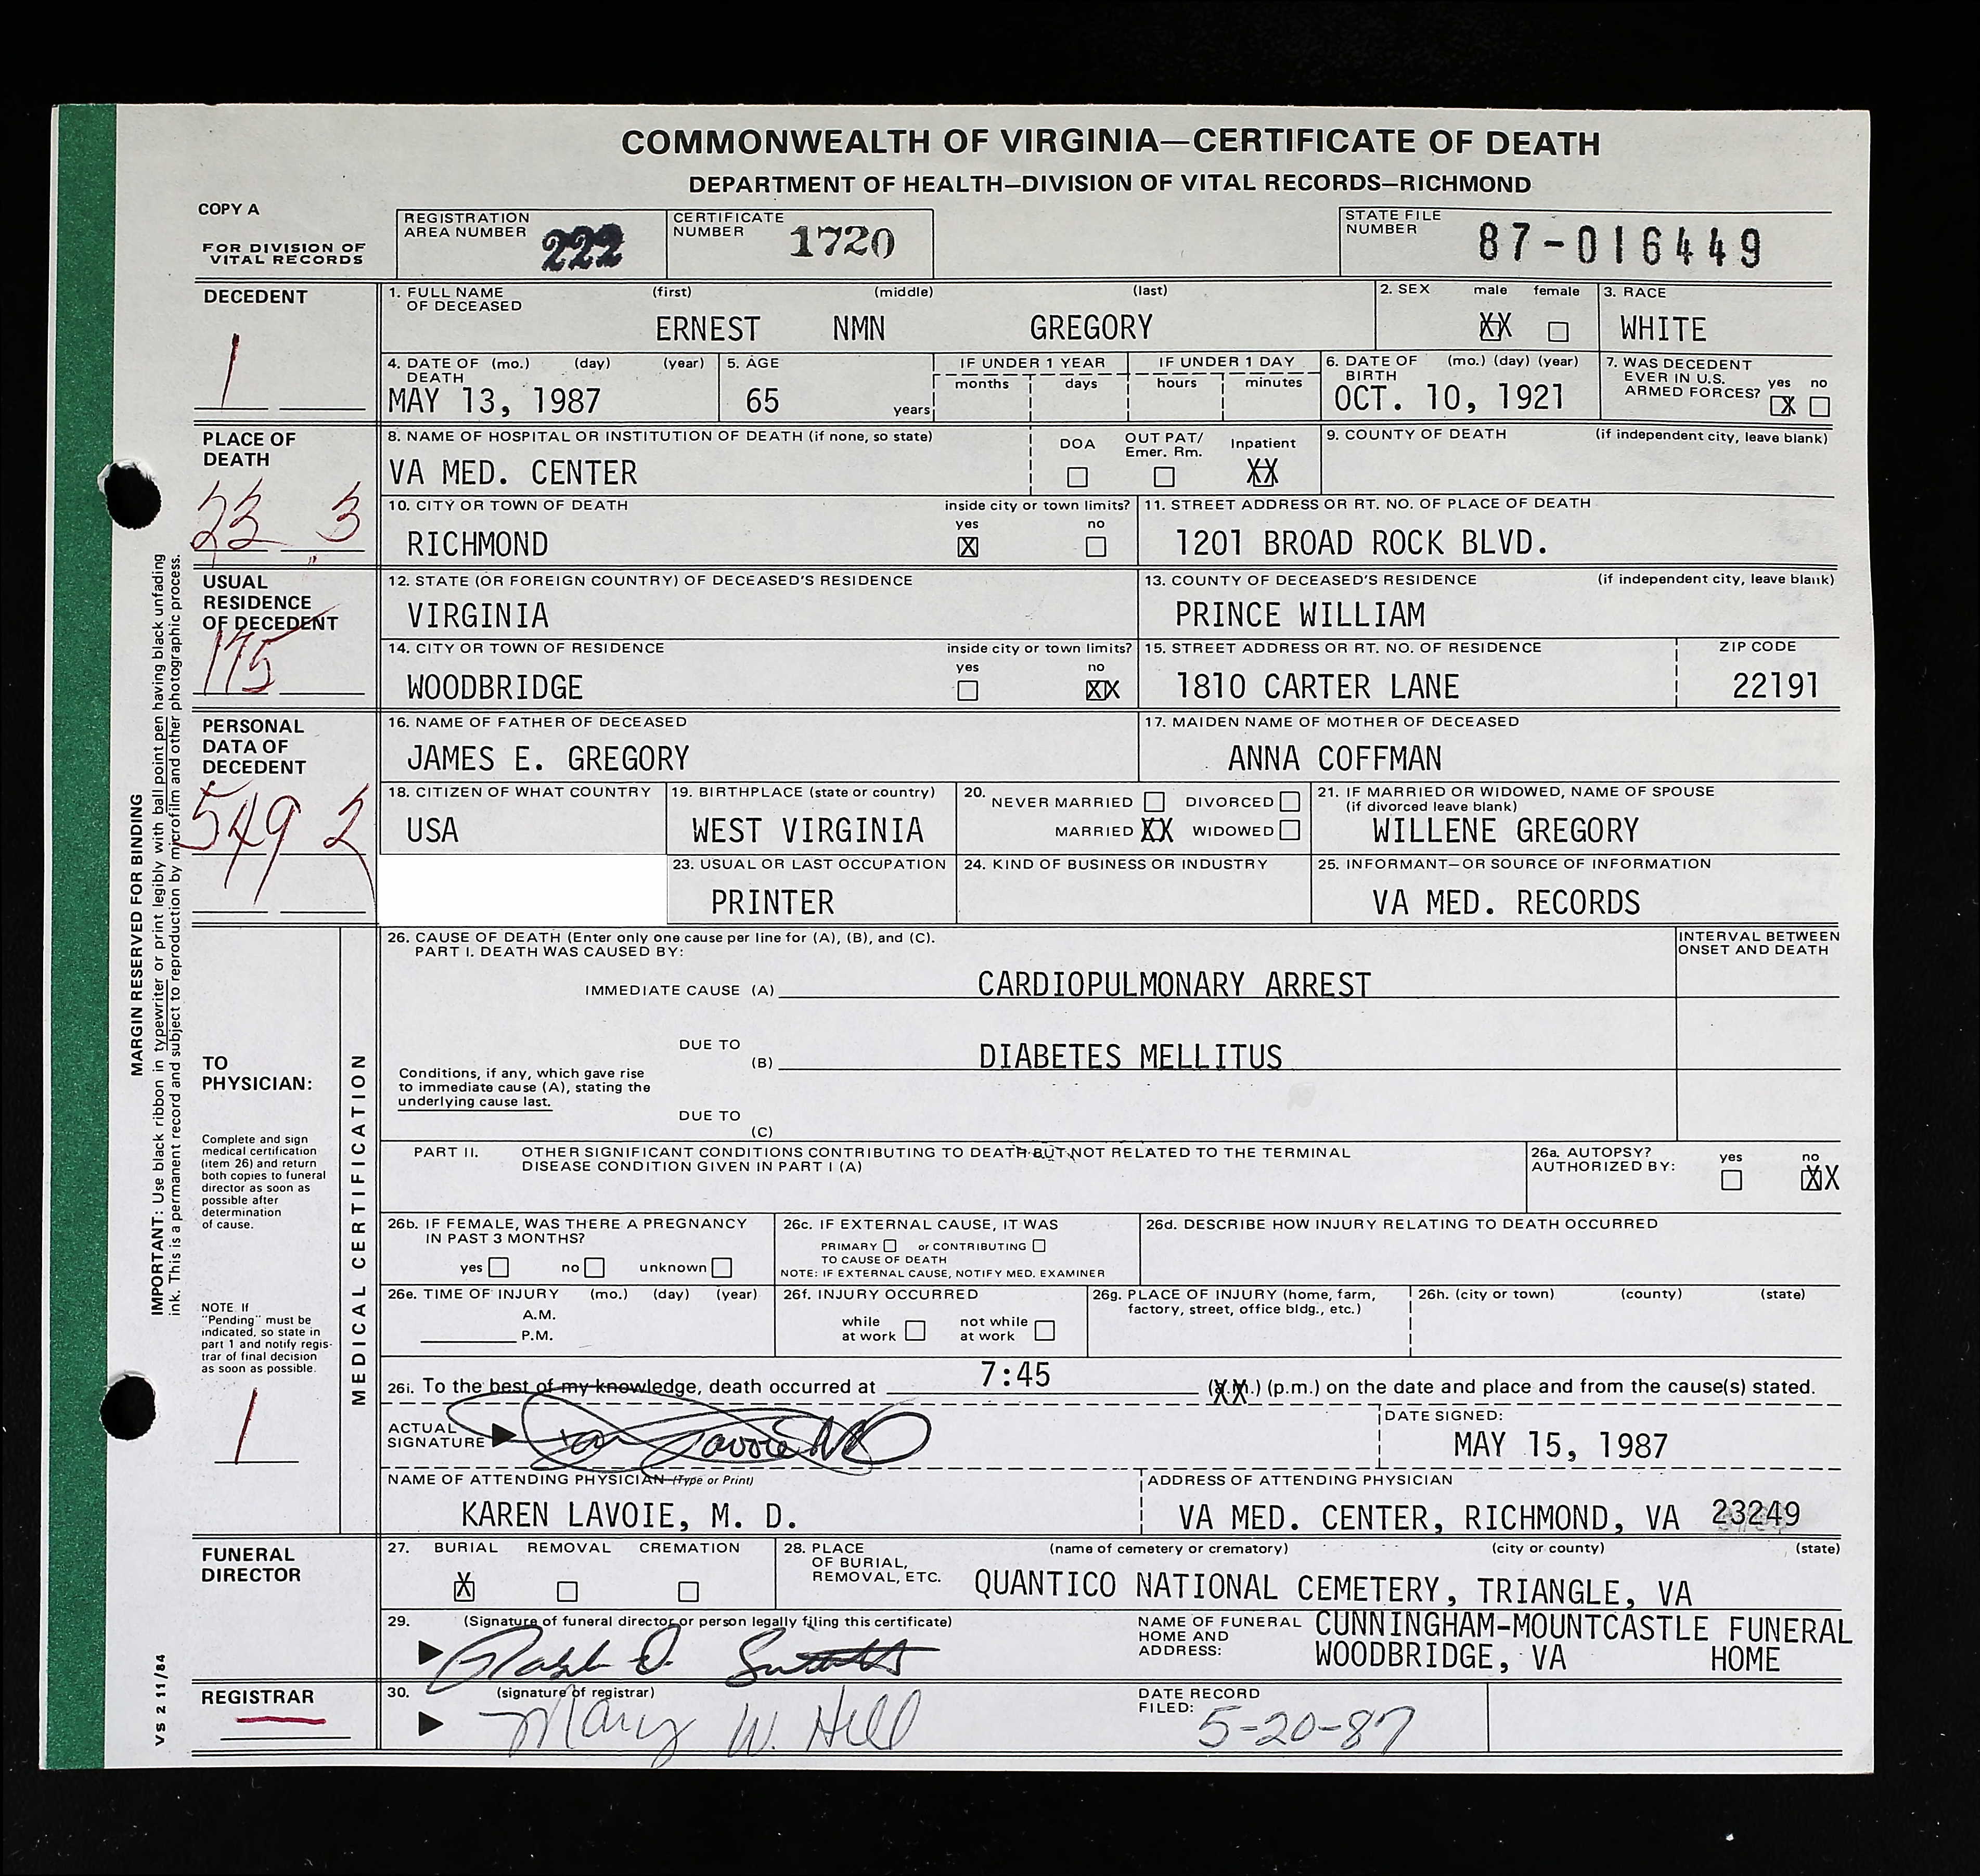 COMMONWEALTH OF VIRGINIA—CERTIFICATE OF DEATH
DEPARTMENT OF HEALTH—DIVISION OF VITAL RECORDS—RICHMOND
COPY A
FOR DIVISION OF VITAL RECORDS
REGISTRATION AREA NUMBER 222
CERTIFICATE NUMBER 1720
STATE FILE NUMBER 87-016449
DECEDENT
1
1. FULL NAME OF DECEASED (first) (middle) (last)
ERNEST NMN GREGORY
2. SEX male female
XX
3. RACE
WHITE
4. DATE OF DEATH (mo.) (day) (year)
MAY 13, 1987
5. AGE
65 years
IF UNDER 1 YEAR
months days
IF UNDER 1 DAY
hours minutes
6. DATE OF BIRTH (mo.) (day) (year)
OCT. 10, 1921
7. WAS DECEDENT EVER IN U.S. ARMED FORCES? yes no
X
PLACE OF DEATH
23 3
8. NAME OF HOSPITAL OR INSTITUTION OF DEATH (if none, so state)
VA MED. CENTER
DOA OUT PAT/ Emer. Rm. Inpatient
XX
9. COUNTY OF DEATH (if independent city, leave blank)
10. CITY OR TOWN OF DEATH inside city or town limits?
yes no
RICHMOND X
11. STREET ADDRESS OR RT. NO. OF PLACE OF DEATH
1201 BROAD ROCK BLVD.
USUAL RESIDENCE OF DECEDENT
175
12. STATE (OR FOREIGN COUNTRY) OF DECEASED'S RESIDENCE
VIRGINIA
13. COUNTY OF DECEASED'S RESIDENCE (if independent city, leave blank)
PRINCE WILLIAM
14. CITY OR TOWN OF RESIDENCE inside city or town limits?
yes no
WOODBRIDGE XX
15. STREET ADDRESS OR RT. NO. OF RESIDENCE ZIP CODE
1810 CARTER LANE 22191
PERSONAL DATA OF DECEDENT
549 2
16. NAME OF FATHER OF DECEASED
JAMES E. GREGORY
17. MAIDEN NAME OF MOTHER OF DECEASED
ANNA COFFMAN
18. CITIZEN OF WHAT COUNTRY
USA
19. BIRTHPLACE (state or country)
WEST VIRGINIA
20. NEVER MARRIED DIVORCED
MARRIED XX WIDOWED
21. IF MARRIED OR WIDOWED, NAME OF SPOUSE
(if divorced leave blank)
WILLENE GREGORY
23. USUAL OR LAST OCCUPATION
PRINTER
24. KIND OF BUSINESS OR INDUSTRY
25. INFORMANT—OR SOURCE OF INFORMATION
VA MED. RECORDS
MARGIN RESERVED FOR BINDING
IMPORTANT: Use black ribbon in typewriter or print legibly with ball point pen having black unfading
ink. This is a permanent record and subject to reproduction by microfilm and other photographic process.
VS 2 11/84
TO PHYSICIAN:
Complete and sign
medical certification
(item 26) and return
both copies to funeral
director as soon as
possible after
determination
of cause.
NOTE. If
"Pending" must be
indicated, so state in
part 1 and notify regis-
trar of final decision
as soon as possible.
1
MEDICAL CERTIFICATION
26. CAUSE OF DEATH (Enter only one cause per line for (A), (B), and (C).
PART I. DEATH WAS CAUSED BY:
INTERVAL BETWEEN ONSET AND DEATH
IMMEDIATE CAUSE (A) CARDIOPULMONARY ARREST
DUE TO
(B) DIABETES MELLITUS
Conditions, if any, which gave rise
to immediate cause (A), stating the
underlying cause last.
DUE TO
(C)
PART II. OTHER SIGNIFICANT CONDITIONS CONTRIBUTING TO DEATH BUT NOT RELATED TO THE TERMINAL
DISEASE CONDITION GIVEN IN PART I (A)
26a. AUTOPSY? yes no
AUTHORIZED BY: XX
26b. IF FEMALE, WAS THERE A PREGNANCY
IN PAST 3 MONTHS?
yes no unknown
26c. IF EXTERNAL CAUSE, IT WAS
PRIMARY or CONTRIBUTING
TO CAUSE OF DEATH
NOTE: IF EXTERNAL CAUSE, NOTIFY MED. EXAMINER
26d. DESCRIBE HOW INJURY RELATING TO DEATH OCCURRED
26e. TIME OF INJURY (mo.) (day) (year)
A.M.
P.M.
26f. INJURY OCCURRED
while at work not while at work
26g. PLACE OF INJURY (home, farm,
factory, street, office bldg., etc.)
26h. (city or town) (county) (state)
26i. To the best of my knowledge, death occurred at 7:45 (a.m.) (p.m.) on the date and place and from the cause(s) stated.
ACTUAL SIGNATURE
DATE SIGNED:
MAY 15, 1987
NAME OF ATTENDING PHYSICIAN (Type or Print)
KAREN LAVOIE, M. D.
ADDRESS OF ATTENDING PHYSICIAN
VA MED. CENTER, RICHMOND, VA 23249
FUNERAL DIRECTOR
27. BURIAL REMOVAL CREMATION
X
28. PLACE OF BURIAL, REMOVAL, ETC. (name of cemetery or crematory) (city or county) (state)
QUANTICO NATIONAL CEMETERY, TRIANGLE, VA
29. (Signature of funeral director or person legally filing this certificate)
NAME OF FUNERAL HOME AND ADDRESS:
CUNNINGHAM-MOUNTCASTLE FUNERAL
WOODBRIDGE, VA HOME
REGISTRAR
30. (signature of registrar)
Mary W. Hill
DATE RECORD FILED:
5-20-87